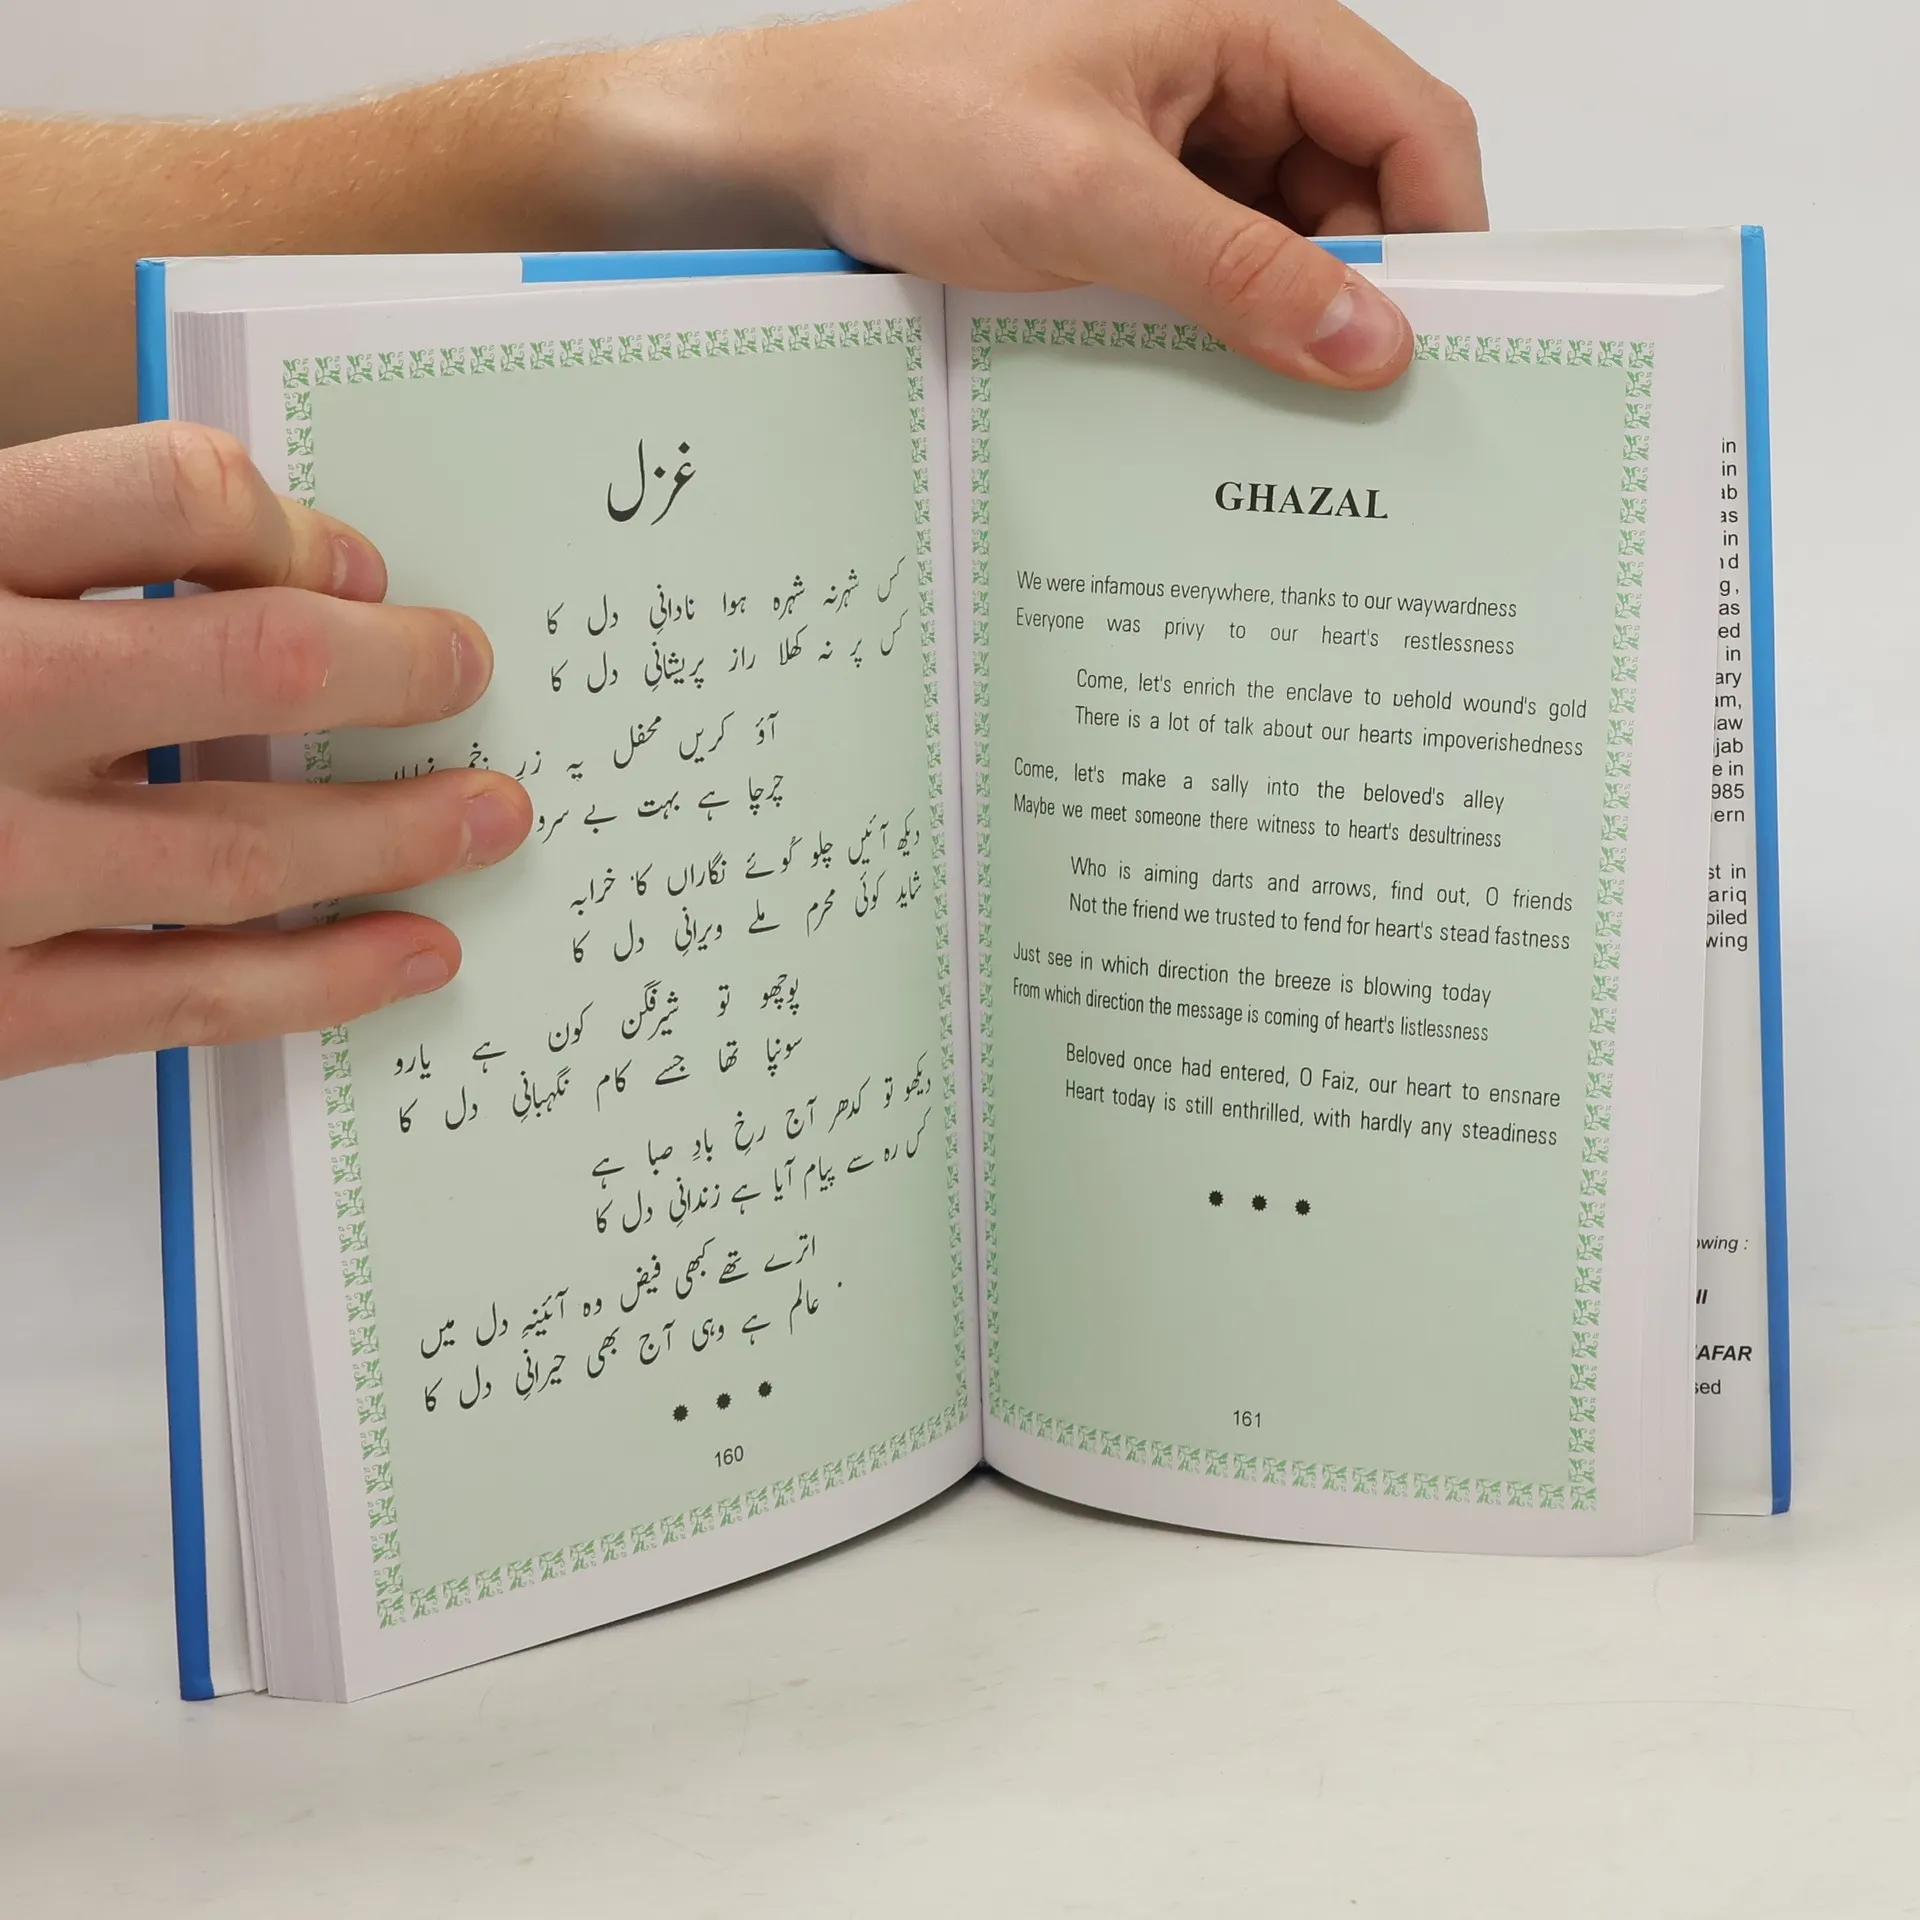 غزل
کس شہر نہ شہرہ ہوا نادانیِ دل کا
کس پر نہ کھلا راز پریشانیِ دل کا
آؤ کریں محفل پہ زرِ زخم
چرچا ہے بہت بے سرو
دیکھ آئیں چلو کُوئے نگاراں کا خرابہ
شاید کوئی محرم ملے ویرانیِ دل کا
پوچھو تو شیرفگن کون ہے یارو
سونپا تھا جسے کام نگہبانیِ دل کا
دیکھو تو کدھر آج رخِ بادِ صبا ہے
کس رہ سے پیام آیا ہے زندانیِ دل کا
اترے تھے کبھی فیض وہ آئینہِ دل میں
عالم ہے وہی آج بھی حیرانیِ دل کا
160
GHAZAL
We were infamous everywhere, thanks to our waywardness
Everyone was privy to our heart's restlessness
Come, let's enrich the enclave to behold wound's gold
There is a lot of talk about our hearts impoverishedness
Come, let's make a sally into the beloved's alley
Maybe we meet someone there witness to heart's desultriness
Who is aiming darts and arrows, find out, O friends
Not the friend we trusted to fend for heart's stead fastness
Just see in which direction the breeze is blowing today
From which direction the message is coming of heart's listlessness
Beloved once had entered, O Faiz, our heart to ensnare
Heart today is still enthrilled, with hardly any steadiness
161
in
in
ab
as
in
nd
g,
as
ed
in
ary
am,
law
jab
e in
985
ern
st in
ariq
piled
wing
owing :
NI
AFAR
sed